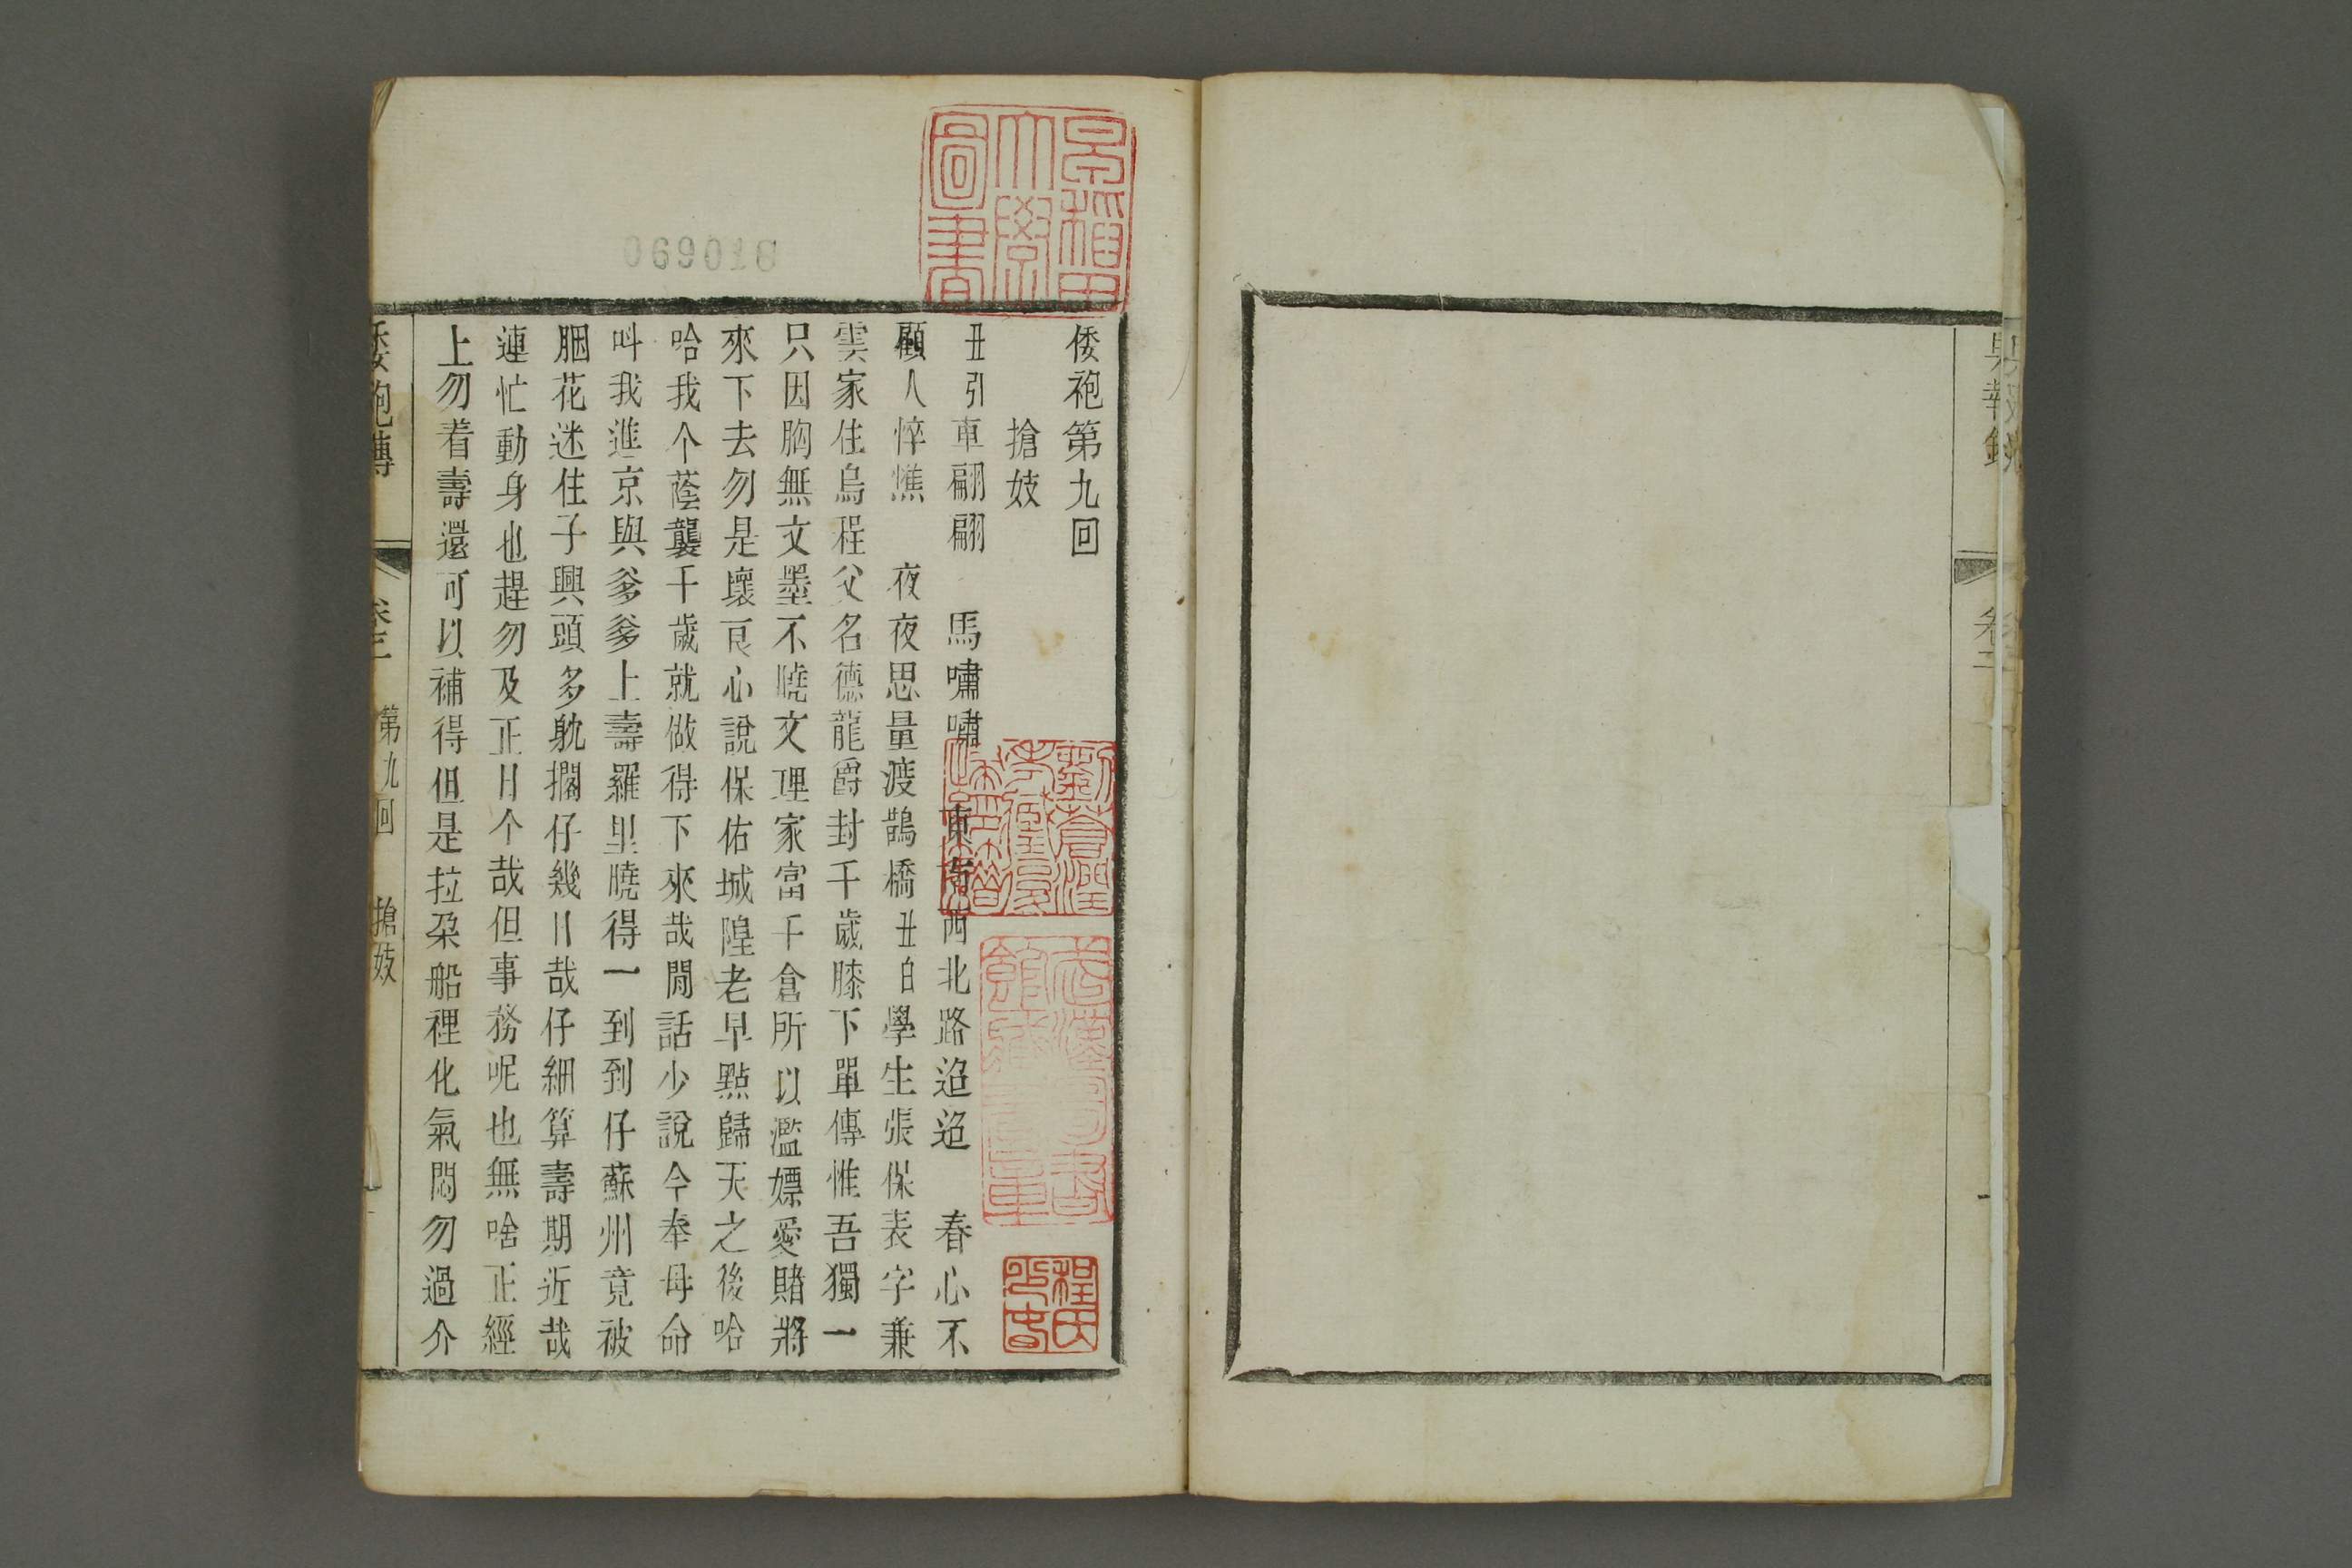 果報錄
卷二
倭袍第九回
搶妓
丑引車翩翩　馬嘯嘯　東南西北路迢迢　春心不
顧人悴憔　夜夜思量渡鵲橋丑白學生張保表字兼
雲家住烏程父名德龍爵封千歲膝下單傳惟吾獨一
只因胸無文墨不曉文理家富千倉所以濫嫖愛賭將
來下去勿是壞良心說保佑城隍老早點歸天之後哈
哈我个蔭襲千歲就做得下來哉閒話少說今奉母命
呌我進京與爹爹上壽羅里曉得一到到仔蘇州竟被
胭花迷住子興頭多躭擱仔幾日哉仔細算壽期近哉
連忙動身也趕勿及正日个哉但事務呢也無啥正經
上勿着壽還可以補得但是拉朶船裡化氣悶勿過介
倭袍傳
卷三
第九回
搶妓
早稻田
大學
圖書
069018
程氏